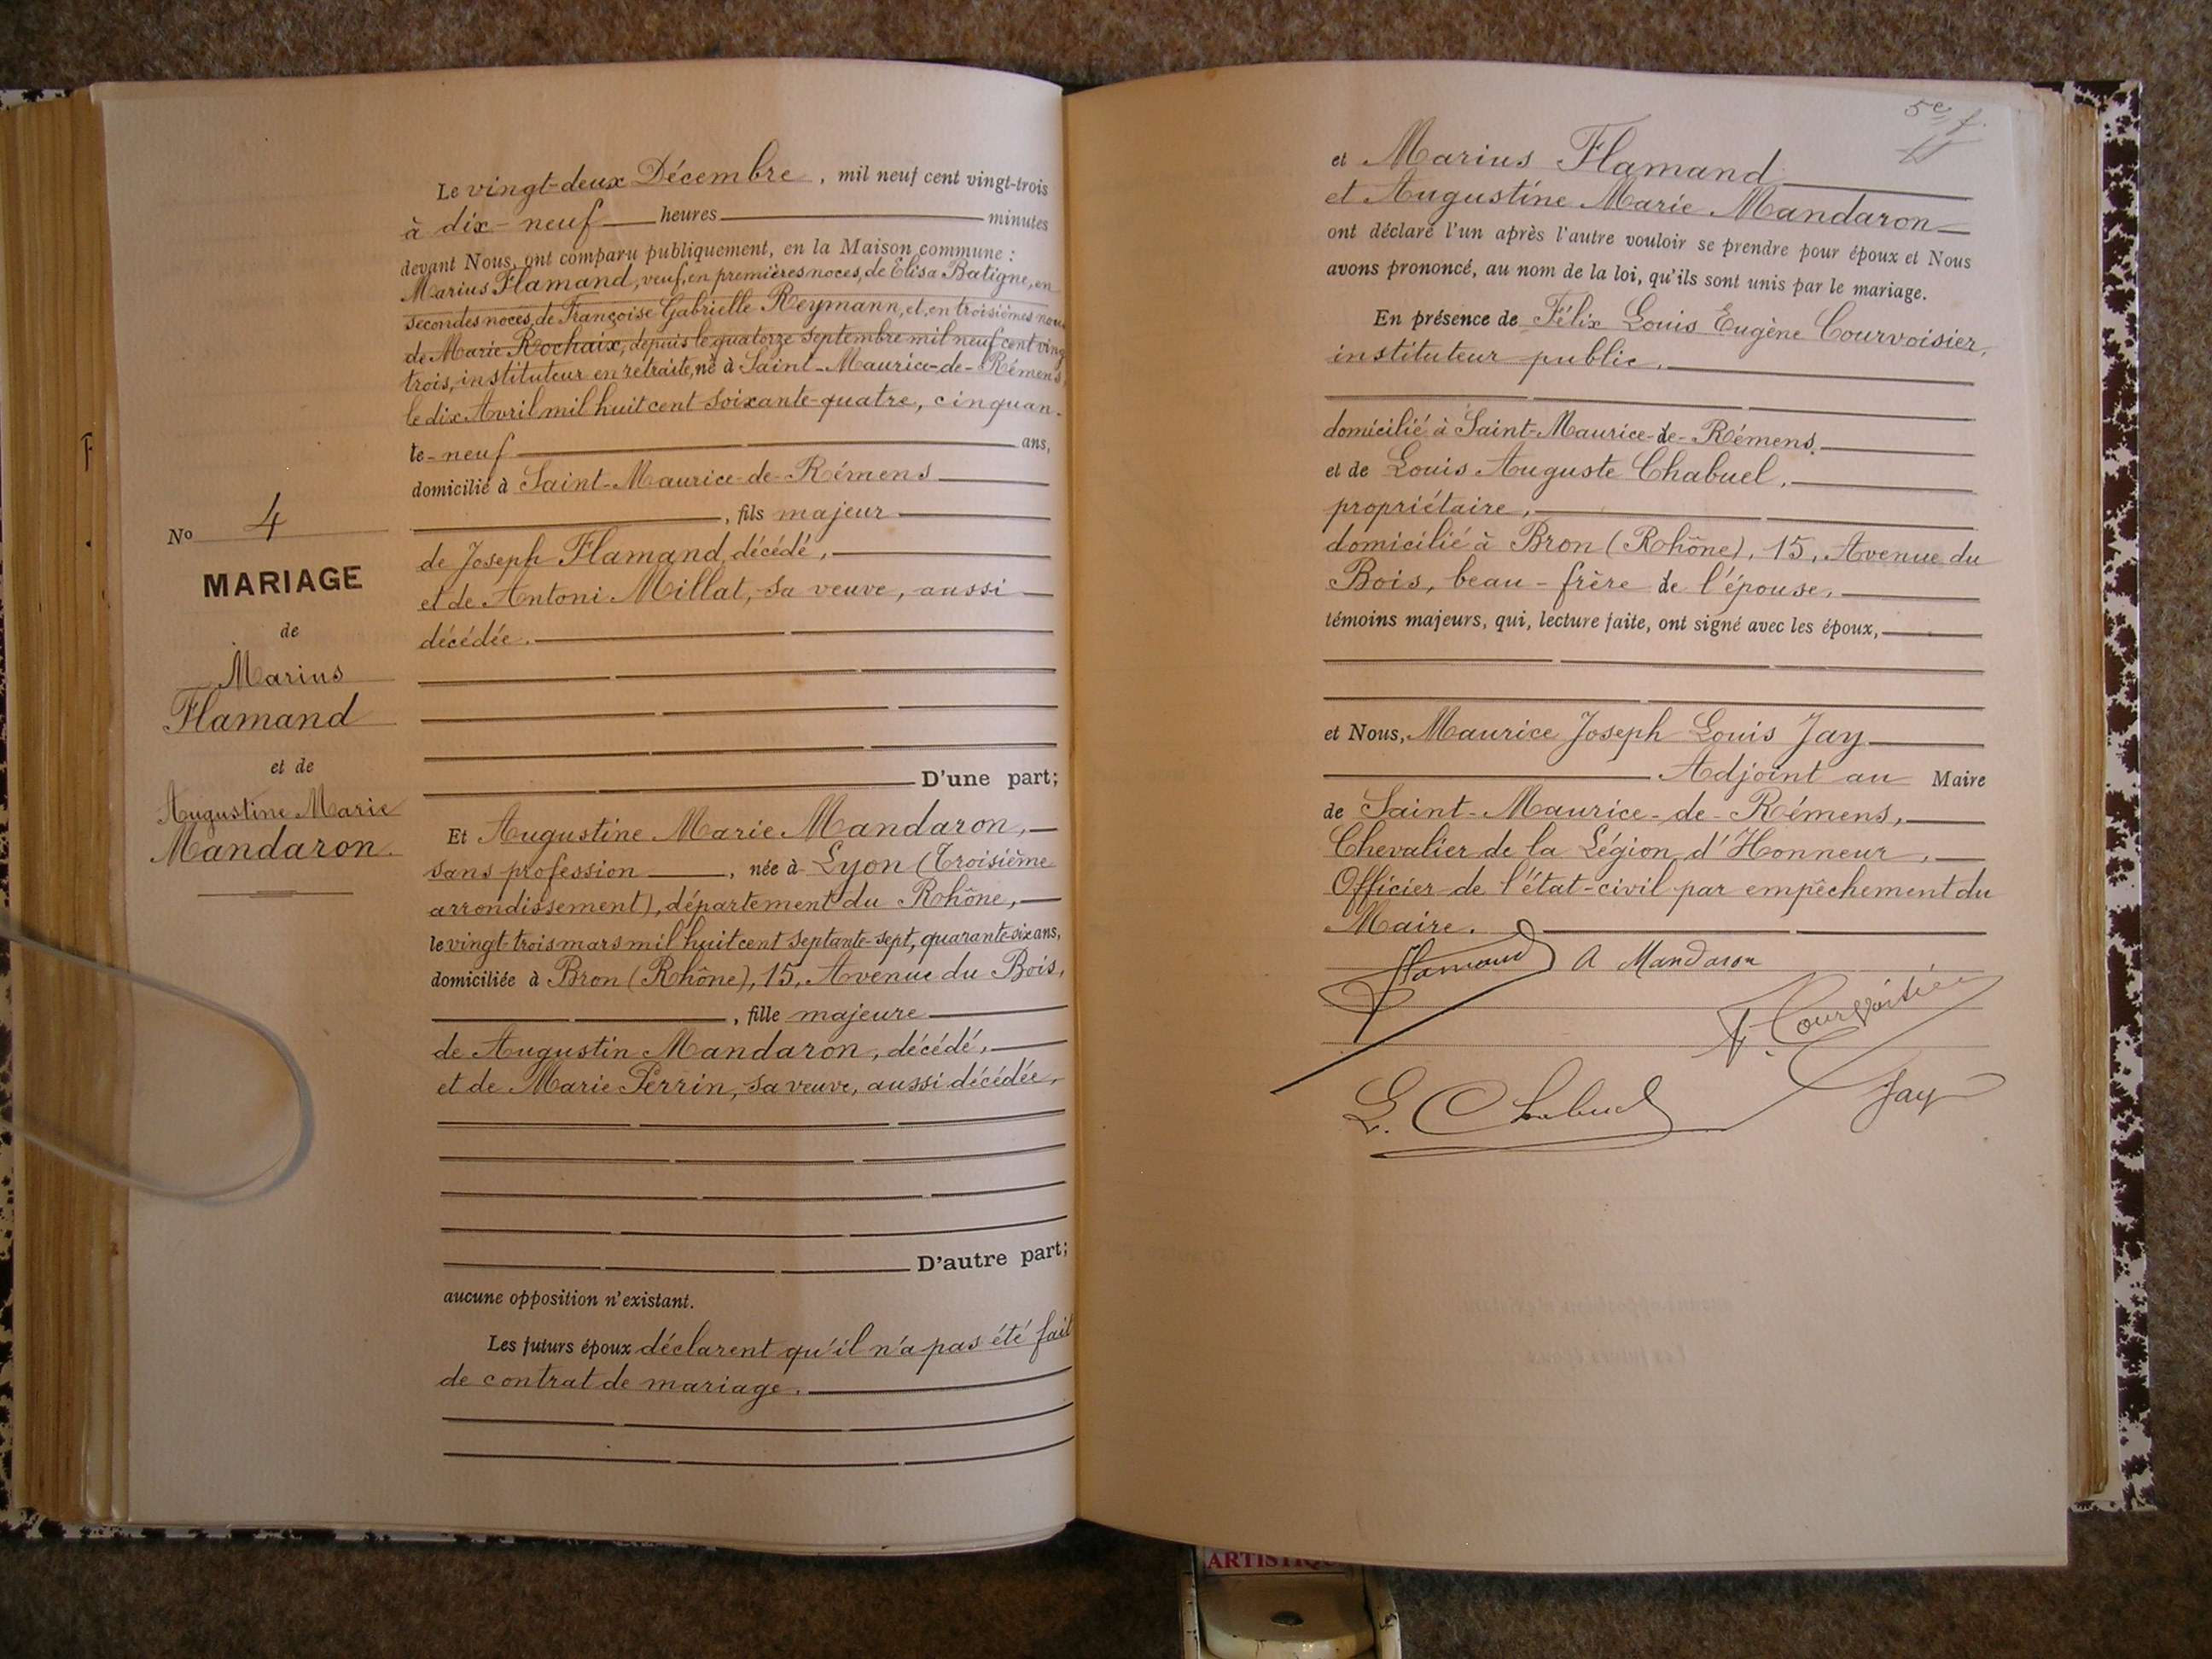 Le vingt-deux Décembre, mil neuf cent vingt-trois
à dix-neuf heures minutes
devant Nous, ont comparu publiquement, en la Maison commune :
Marius Flamand, veuf, en premières noces, de Élisa Batigne, en
secondes noces, de Françoise Gabrielle Reymann, et, en troisièmes noces
de Marie Rochaix, depuis le quatorze Septembre mil neuf cent vingt
trois, instituteur en retraite, né à Saint-Maurice-de-Rémens,
le dix Avril mil huit cent soixante-quatre, cinquan-
te-neuf ans,
domicilié à Saint-Maurice-de-Rémens
, fils majeur
de Joseph Flamand, décédé,
et de Antoni Millat, sa veuve, aussi
décédée.
D'une part;
No 4
MARIAGE
de
Marius
Flamand
et de
Augustine Marie
Mandaron.
Et Augustine Marie Mandaron,
sans profession, née à Lyon (Troisième
arrondissement), département du Rhône,
le vingt-trois mars mil huit cent septante-sept, quarante-six ans,
domiciliée à Bron (Rhône), 15, Avenue du Bois,
, fille majeure
de Augustin Mandaron, décédé,
et de Marie Perrin, sa veuve, aussi décédée,
D'autre part;
aucune opposition n'existant.
Les futurs époux déclarent qu'il n'a pas été fait
de contrat de mariage.
5e f.
et Marius Flamand
et Augustine Marie Mandaron
ont déclaré l'un après l'autre vouloir se prendre pour époux et Nous
avons prononcé, au nom de la loi, qu'ils sont unis par le mariage.
En présence de Félix Louis Eugène Courvoisier,
instituteur public,
domicilié à Saint-Maurice-de-Rémens,
et de Louis Auguste Chabuel,
propriétaire,
domicilié à Bron (Rhône), 15, Avenue du
Bois, beau-frère de l'épouse,
témoins majeurs, qui, lecture faite, ont signé avec les époux,
et Nous, Maurice Joseph Louis Jay
Adjoint au Maire
de Saint-Maurice-de-Rémens,
Chevalier de la Légion d'Honneur,
Officier de l'état-civil par empêchement du
Maire.
Flamand A Mandaron
F. Courvoisier
L. Chabuel Jay